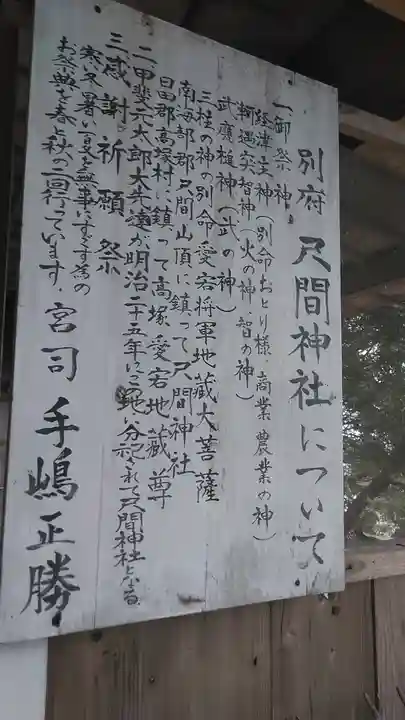 別府 尺間神社について
一御祭神
経津主神(別命おとり様、商業、農業の神)
軻遇突智神(火の神 智の神)
武甕槌神(武の神)
三柱の神の別命愛宕将軍地蔵大菩薩
南海部郡尺間山頂に鎮って尺間神社
日田郡高塚村に鎮って高塚愛宕地蔵尊
二甲斐元太郎大先達が明治二十五年にこの地に分祀されて尺間神社となる
三感謝祈願祭
寒い冬、暑い夏を無事にすごす為の
お祭典を春と秋の二回行っています。
宮司 手嶋正勝